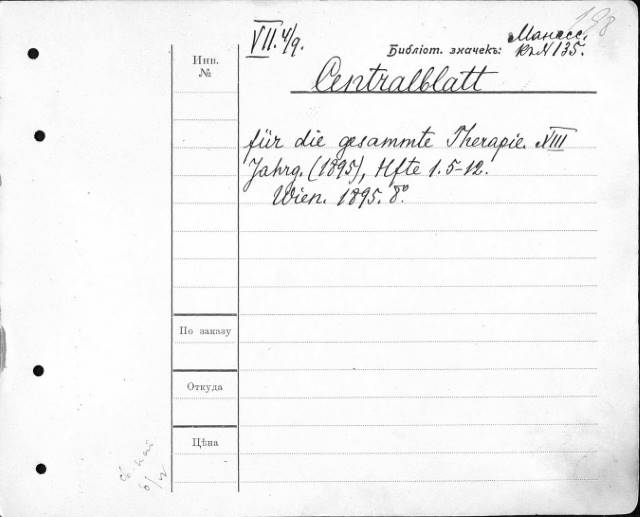 198
VII. 4/9.
Библіот. значекъ: Манасс.
къ N 135.
Инв.
№
Centralblatt
für die gesammte Therapie. XIII
Jahrg. (1895), Hfte 1. 5-12.
Wien. 1895. 8º
По заказу
Откуда
Цѣна